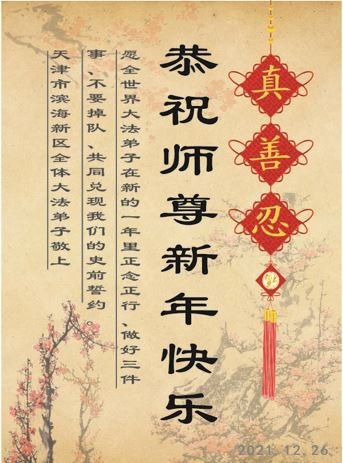 真善忍
恭祝师尊新年快乐
愿全世界大法弟子在新的一年里正念正行、做好三件
事、不要掉队、共同兑现我们的史前誓约
天津市滨海新区全体大法弟子敬上
2021.12.26